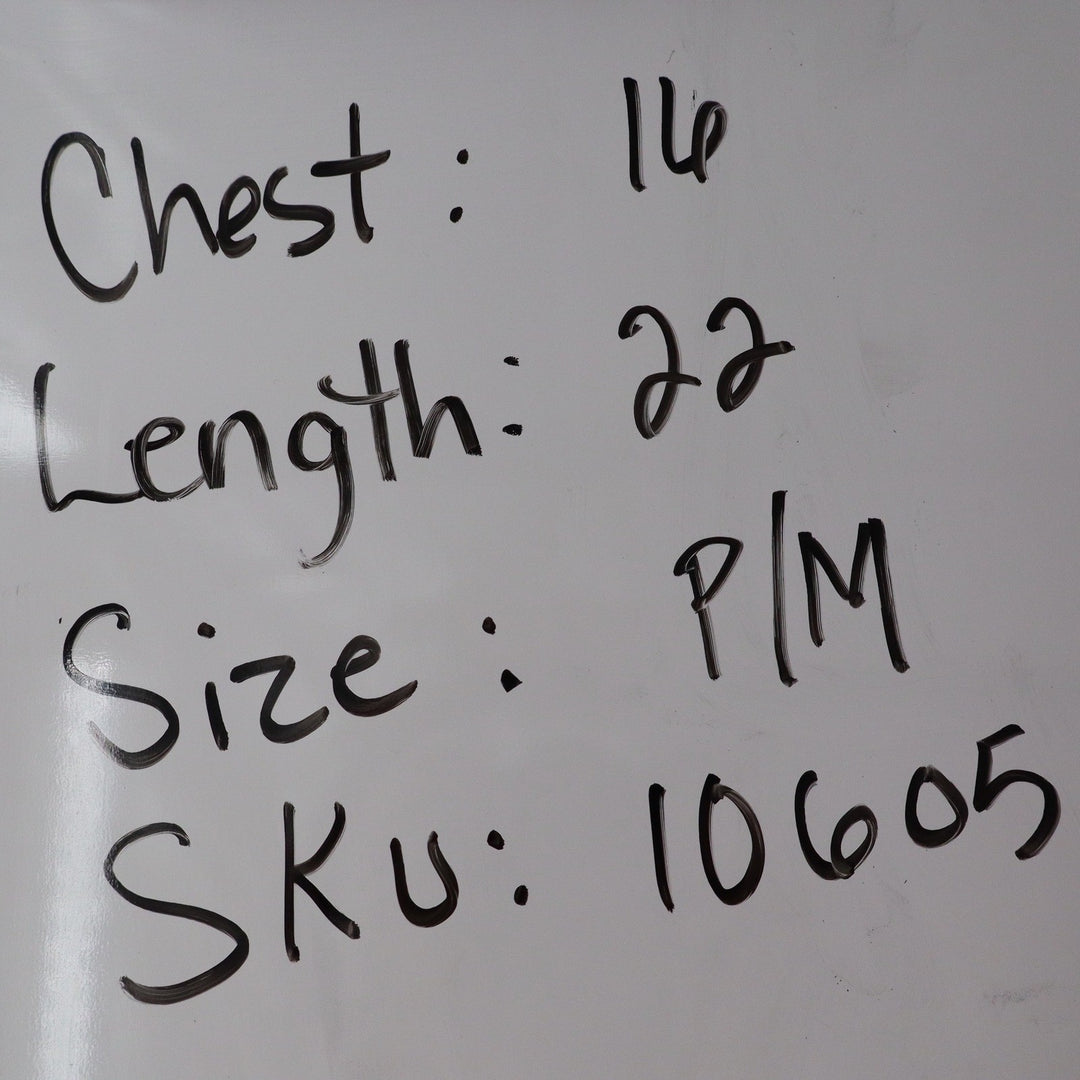 Chest: 16
Length: 22
Size: P/M
SKU: 10605